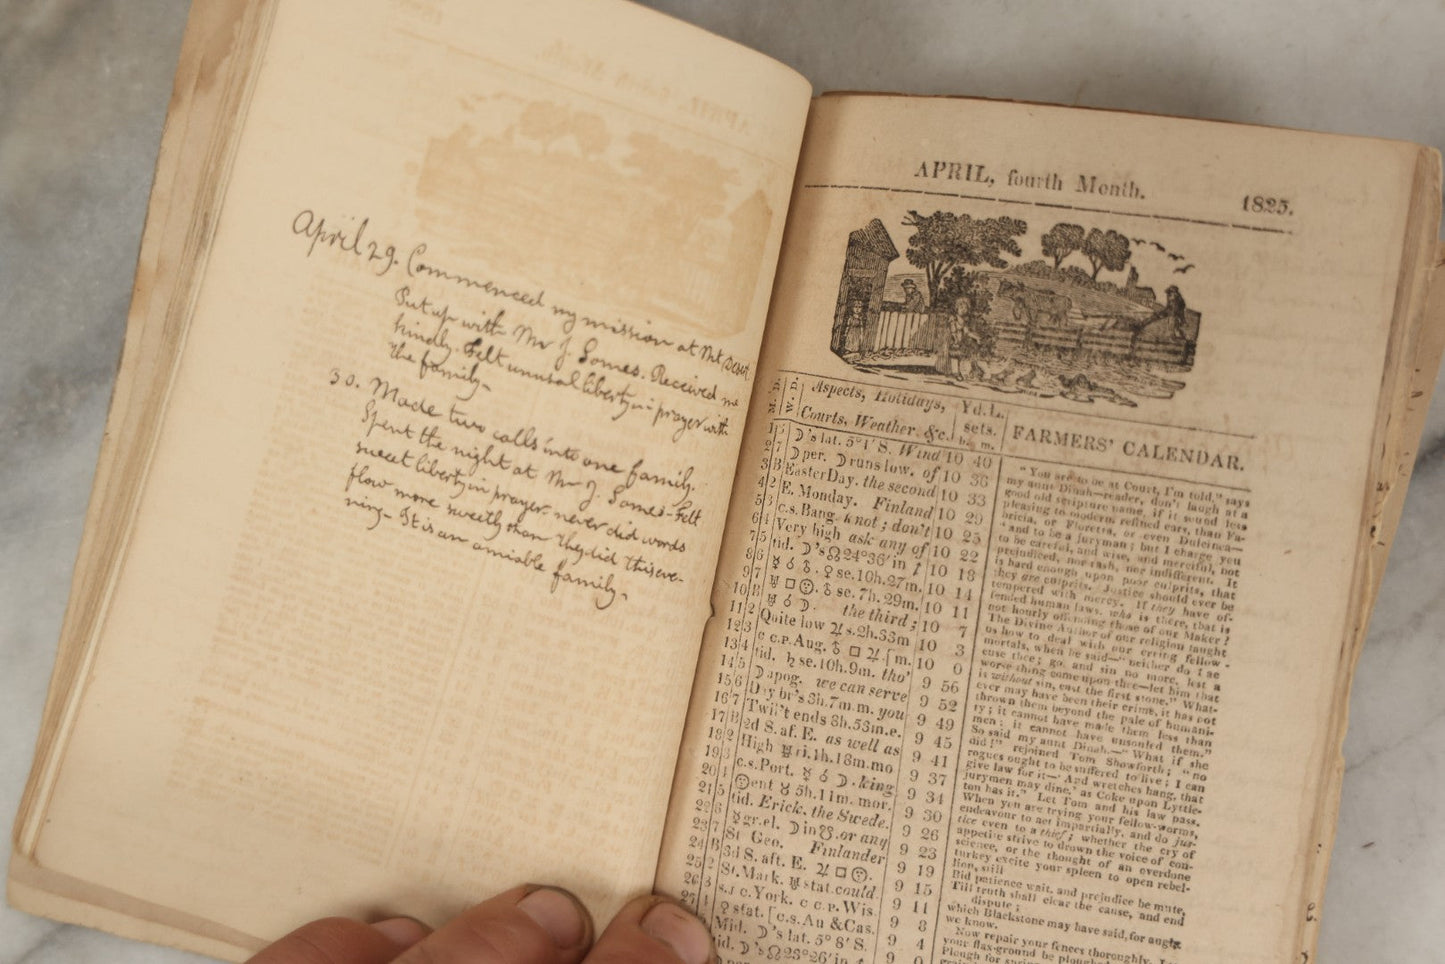 April 29. Commenced my mission at Mt Desert
Put up with Mr J. Somes. Received me
kindly. Felt unusual liberty in prayer with
the family-
30. Made two calls into one family.
Spent the night at Mr J. Somes- Felt
sweet liberty in prayer- never did words
flow more sweetly than they did this eve-
ning- It is an amiable family.
APRIL, fourth Month. 1825.
M. D. W. D. Aspects, Holidays, Courts, Weather, &c. Yd.L. sets. h. m. FARMERS' CALENDAR.
☽'s lat. 5° 1' S. Wind 10 40
☽ per. ☽ runs low. of 10 36
3 B Easter Day. the second 10 33
4 2 E. Monday. Finland 10 29
5 3 c.s. Bang. knot; don't 10 25
6 4 Very high ask any of 10 22
7 5 tid. ☽'s ☊ 24°36' in 10 18
8 6 ☿ ☌ ♁. ♀ se. 10h.27m. 10 14
9 7 □ ♁ se. 7h. 29m. 10 11
10 B ☌ ☽. the third; 10 7
11 2 Quite low ♃ s. 2h. 33m 10 3
12 3 c c.p. Aug. ♁ □ ♃. [m. 10 0
13 4 tid. ♄ se. 10h. 9m. tho' 9 56
14 5 ☽ apog. we can serve 9 52
15 6 Day br's 3h. 7m. m. you 9 49
16 7 Twil't ends 8h. 53m. e. 9 45
17 B 2d S. af. E. as well as 9 41
18 2 High ri. 1h. 18m. mo 9 37
19 3 c.s. Port. ☿ ☌ ☽. king 9 34
20 4 ent ♉ 5h. 11m. mor. 9 30
21 5 tid. Erick, the Swede, 9 26
22 6 ☿ gr. el. ☽ in ☋. or any 9 23
23 7 St Geo. Finlander 9 19
24 B 3d S. aft. E. ♃ □ 9 15
25 2 St. Mark. stat. could 9 11
26 3 s.j c. York. c c.p. Wis. 9 8
27 ♀ stat. [c.s. Au & Cas. 9 4
Mid. ☽'s lat. 5° 8' S. 9 0
tid. ☽'s ☊ 23°26' in
"You are to be at Court, I'm told," says
my aunt Dinah—reader, don't laugh at a
good old scripture name, if it sound less
pleasing to modern refined ears, than Fa-
bricia, or Floretta, or even Dulcinea—
"and to be a juryman; but I charge you
to be careful, and wise, and merciful, not
prejudiced, nor rash, nor indifferent. It
is hard enough upon poor culprits, that
they are culprits. Justice should ever be
tempered with mercy. If they have of-
fended human laws, who is there, that is
not hourly offending those of our Maker?
The Divine Author of our religion taught
us how to deal with our erring fellow-
mortals, when he said—"neither do I ac
cuse thee; go, and sin no more, lest a
worse thing come upon thee—let him that
is without sin, cast the first stone." What-
ever may have been their crime, it has not
thrown them beyond the pale of humani-
ty; it cannot have made them less than
men; it cannot have unsouled them."
So said my aunt Dinah.—"What if she
did!" rejoined Tom Showforth; "no
rogues ought to be suffered to live; I can
give law for it—'And wretches hang, that
jurymen may dine,' as Coke upon Lyttle-
ton has it." Let Tom and his law pass.
When you are trying your fellow-worms,
endeavour to act impartially, and do jus-
tice even to a thief; whether the cry of
appetite strive to drown the voice of con-
science, or the thought of an overdone
turkey excite your spleen to open rebel-
lion, still
Bid patience wait, and prejudice be mute,
Till truth shall clear the cause, and end
dispute;
which Blackstone may have said, for aught
we know.
Now repair your fences thoroughly.
your flax-ground be ploughed